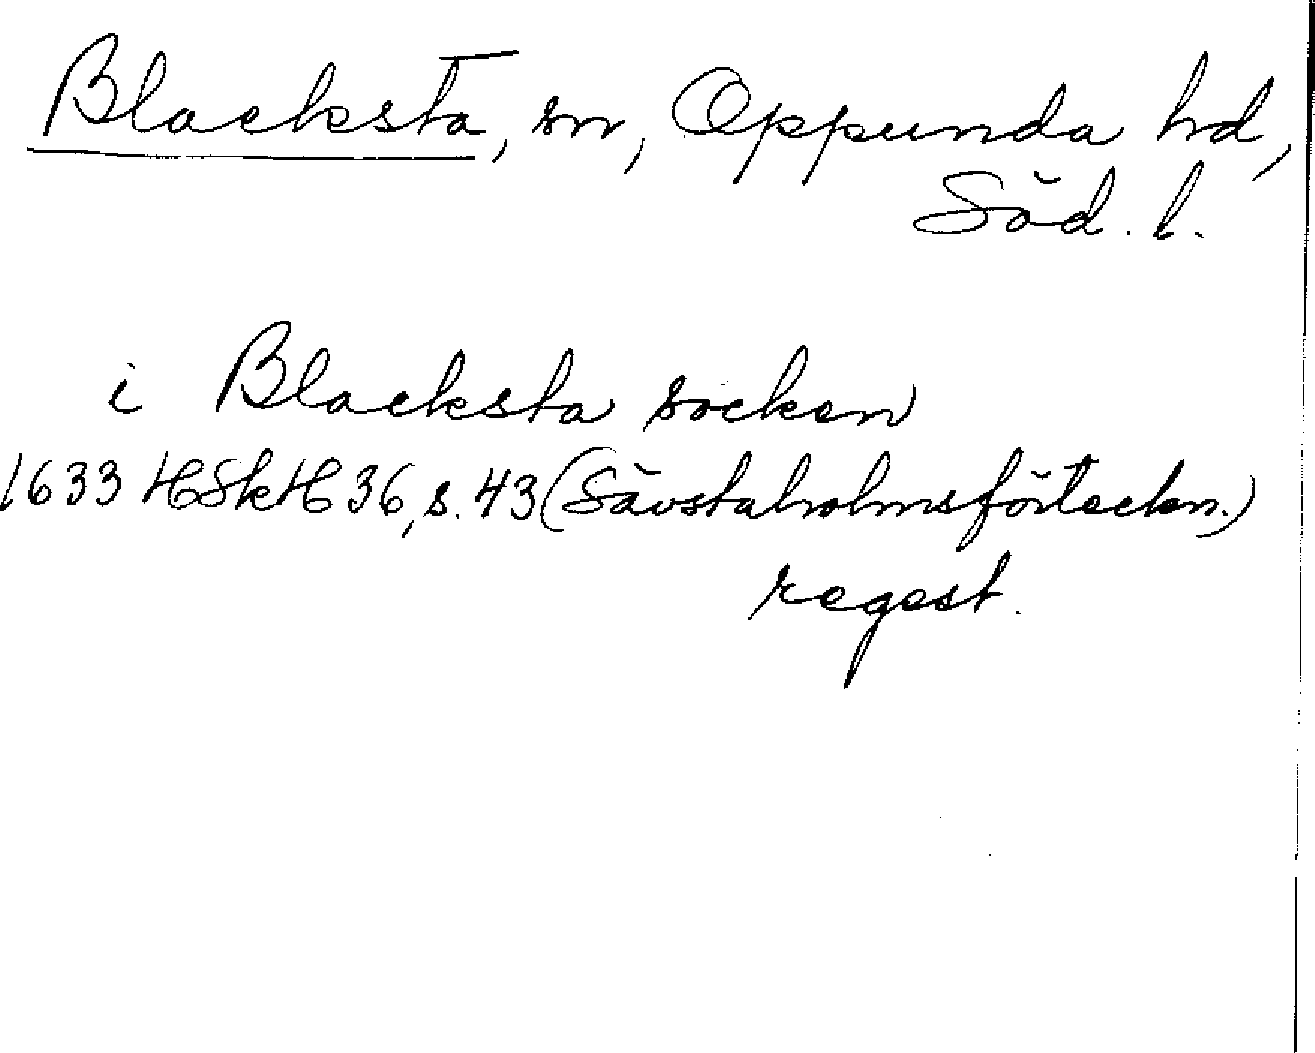 Blacksta, sn, Oppunda hd,
Söd. l.
i Blacksta socken
1633 HSkH 36, s. 43 (Sävstaholmsförteckn.)
regest.